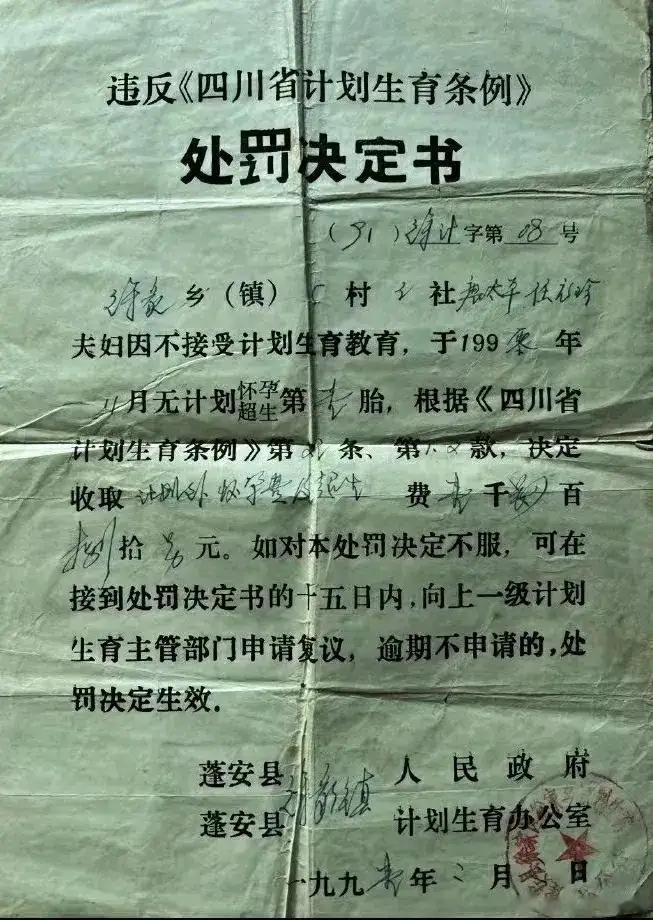 违反《四川省计划生育条例》
处罚决定书
(91)徐计字第08号
徐家乡(镇) 村 社
夫妇因不接受计划生育教育，于199零年
月无计划怀孕超生第壹胎，根据《四川省
计划生育条例》第 条、第 款，决定
收取计划外怀孕费及超生费壹千 百
捌拾 元。如对本处罚决定不服，可在
接到处罚决定书的十五日内，向上一级计划
生育主管部门申请复议，逾期不申请的，处
罚决定生效.
蓬安县 镇人民政府
蓬安县 计划生育办公室
一九九壹年二月 日